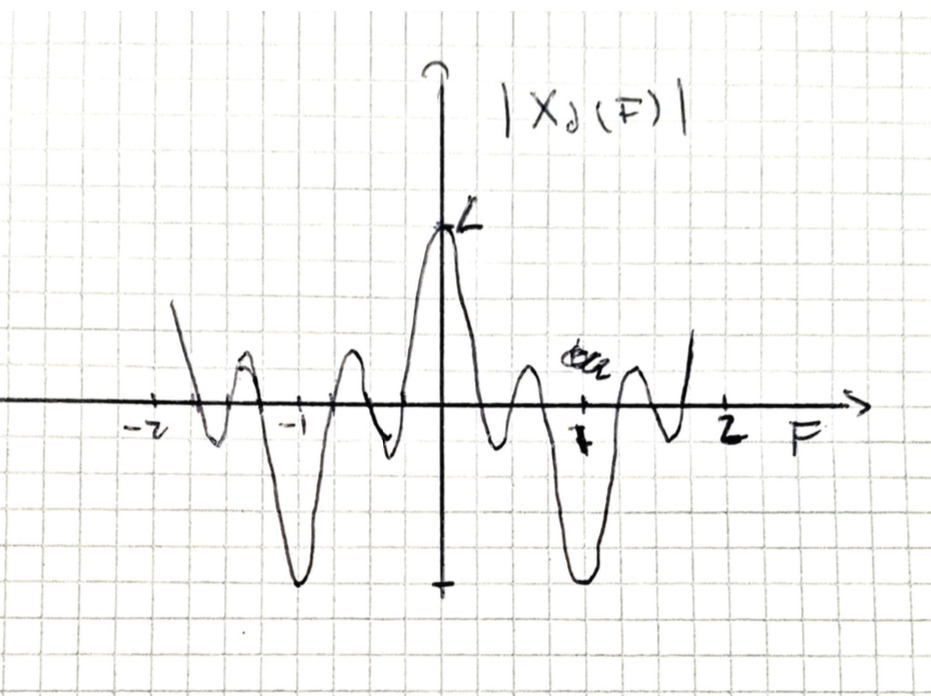 | X_d (F) |
L
-2 -1 1 2 F